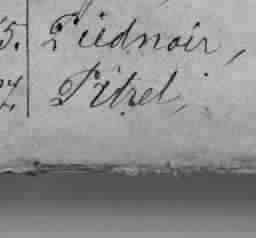 5. Piednoir,
7. Pitrel,